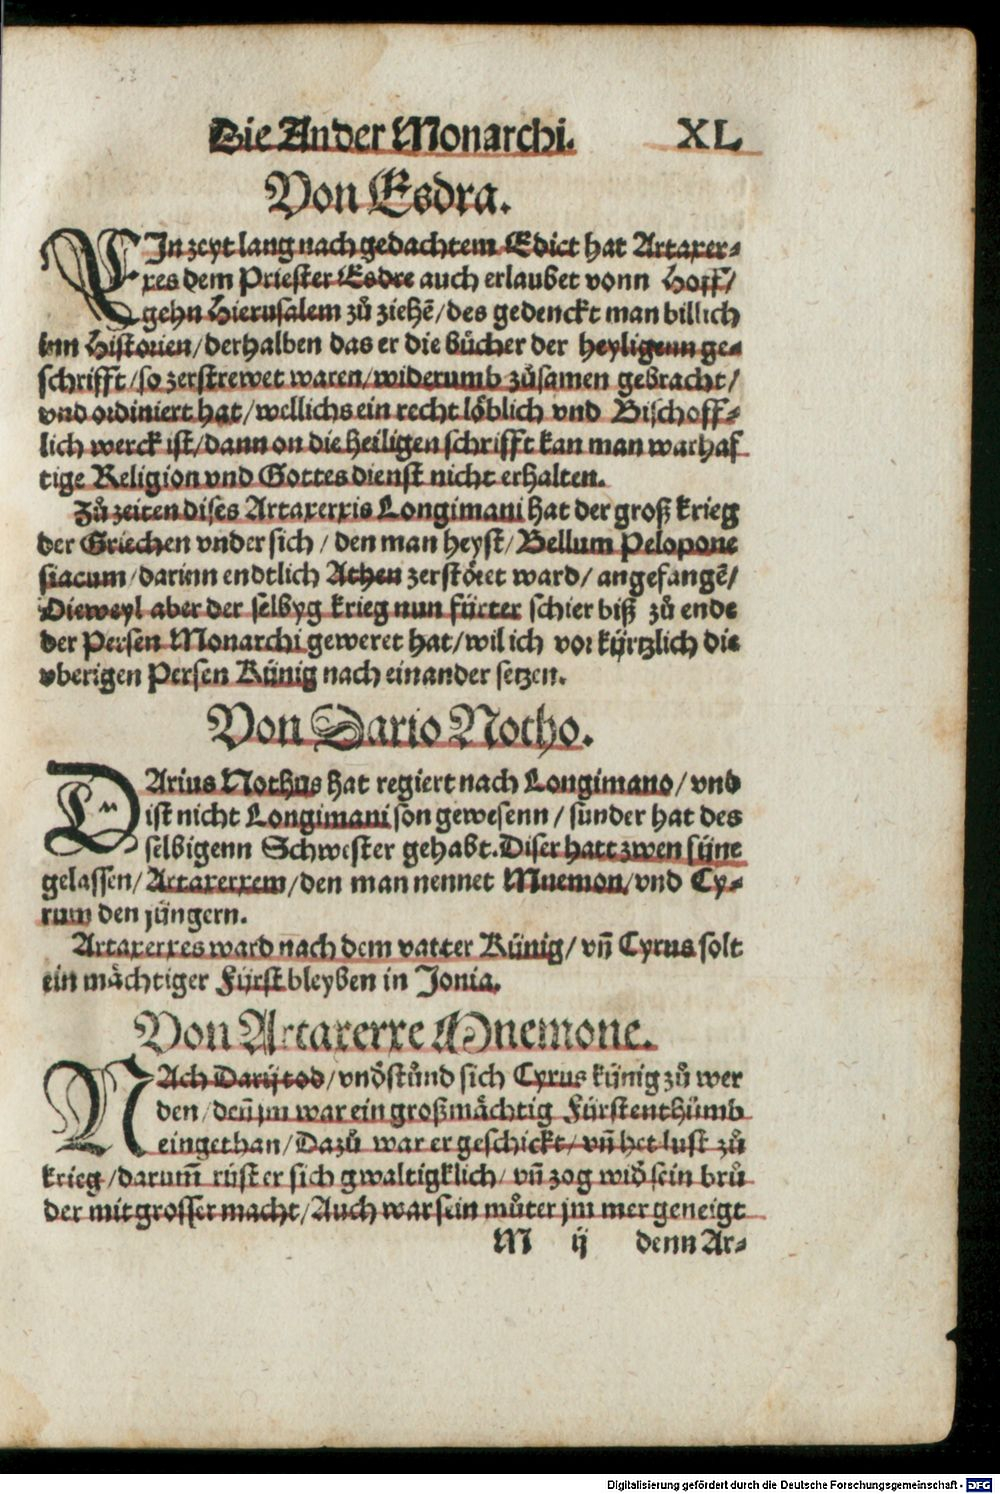 Die Ander Monarchi. XL
Von Esdra.
EIn zeyt lang nach gedachtem Edict hat Artaxer-
xes dem Priester Esdre auch erlaubet vonn Hoff/
gehn Hierusalem zů ziehẽ/des gedenckt man billich
inn Historien/derhalben das er die bůcher der heyligenn ge-
schrifft/so zerstrewet waren/widerumb zůsamen gebracht/
vnd ordiniert hat/wellichs ein recht lôblich vnd Bischoff-
lich werck ist/dann on die heiligen schrifft kan man warhaf
tige Religion vnd Gottes dienst nicht erhalten.
Zů zeiten dises Artaxerxis Longimani hat der groß krieg
der Griechen vnder sich / den man heyst/Bellum Pelopone
siacum/darinn endtlich Athen zerstôret ward/angefangẽ/
Dieweyl aber der selbyg krieg nun fürter schier biß zů ende
der Persen Monarchi geweret hat/wil ich vor kürtzlich die
vberigen Persen Künig nach einander setzen.
Von Dario Notho.
DArius Nothus hat regiert nach Longimano/vnd
ist nicht Longimani son gewesenn/sunder hat des
selbigenn Schwester gehabt.Diser hatt zwen süne
gelassen/Artaxerxem/den man nennet Mnemon/vnd Cy-
rum den jüngern.
Artaxerxes ward nach dem vatter Künig/vñ Cyrus solt
ein mâchtiger Fürst bleyben in Jonia.
Von Artaxerxe Mnemone.
NAch Darij tod/vnd̃stůnd sich Cyrus künig zů wer
den/deñ jm war ein großmâchtig Fürstenthůmb
eingethan/Dazů war er geschickt/vñ het lust zů
krieg/darum̃ rüst er sich gwaltigklich/vñ zog wid̃ sein brů
der mit grosser macht/Auch war sein můter jm mer geneigt
M ij denn Ar-
Digitalisierung gefördert durch die Deutsche Forschungsgemeinschaft - DFG